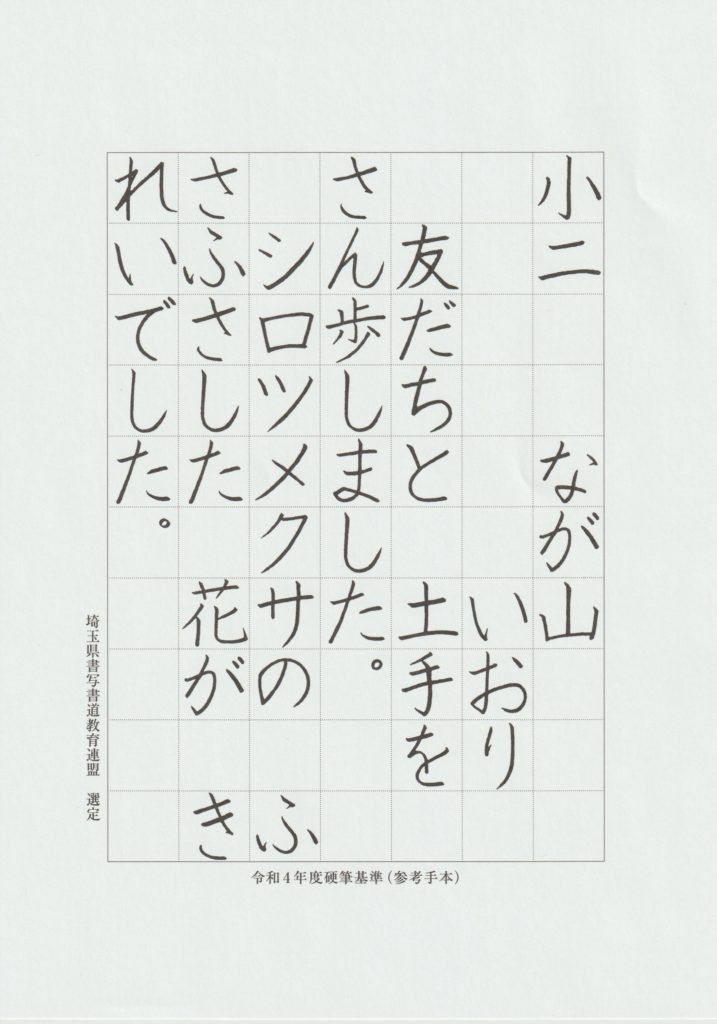 小二　なが山
いおり
友だちと　土手を
さん歩しました。
シロツメクサの　ふ
さふさした　花が　き
れいでした。
埼玉県書写書道教育連盟　選定
令和4年度硬筆基準（参考手本）